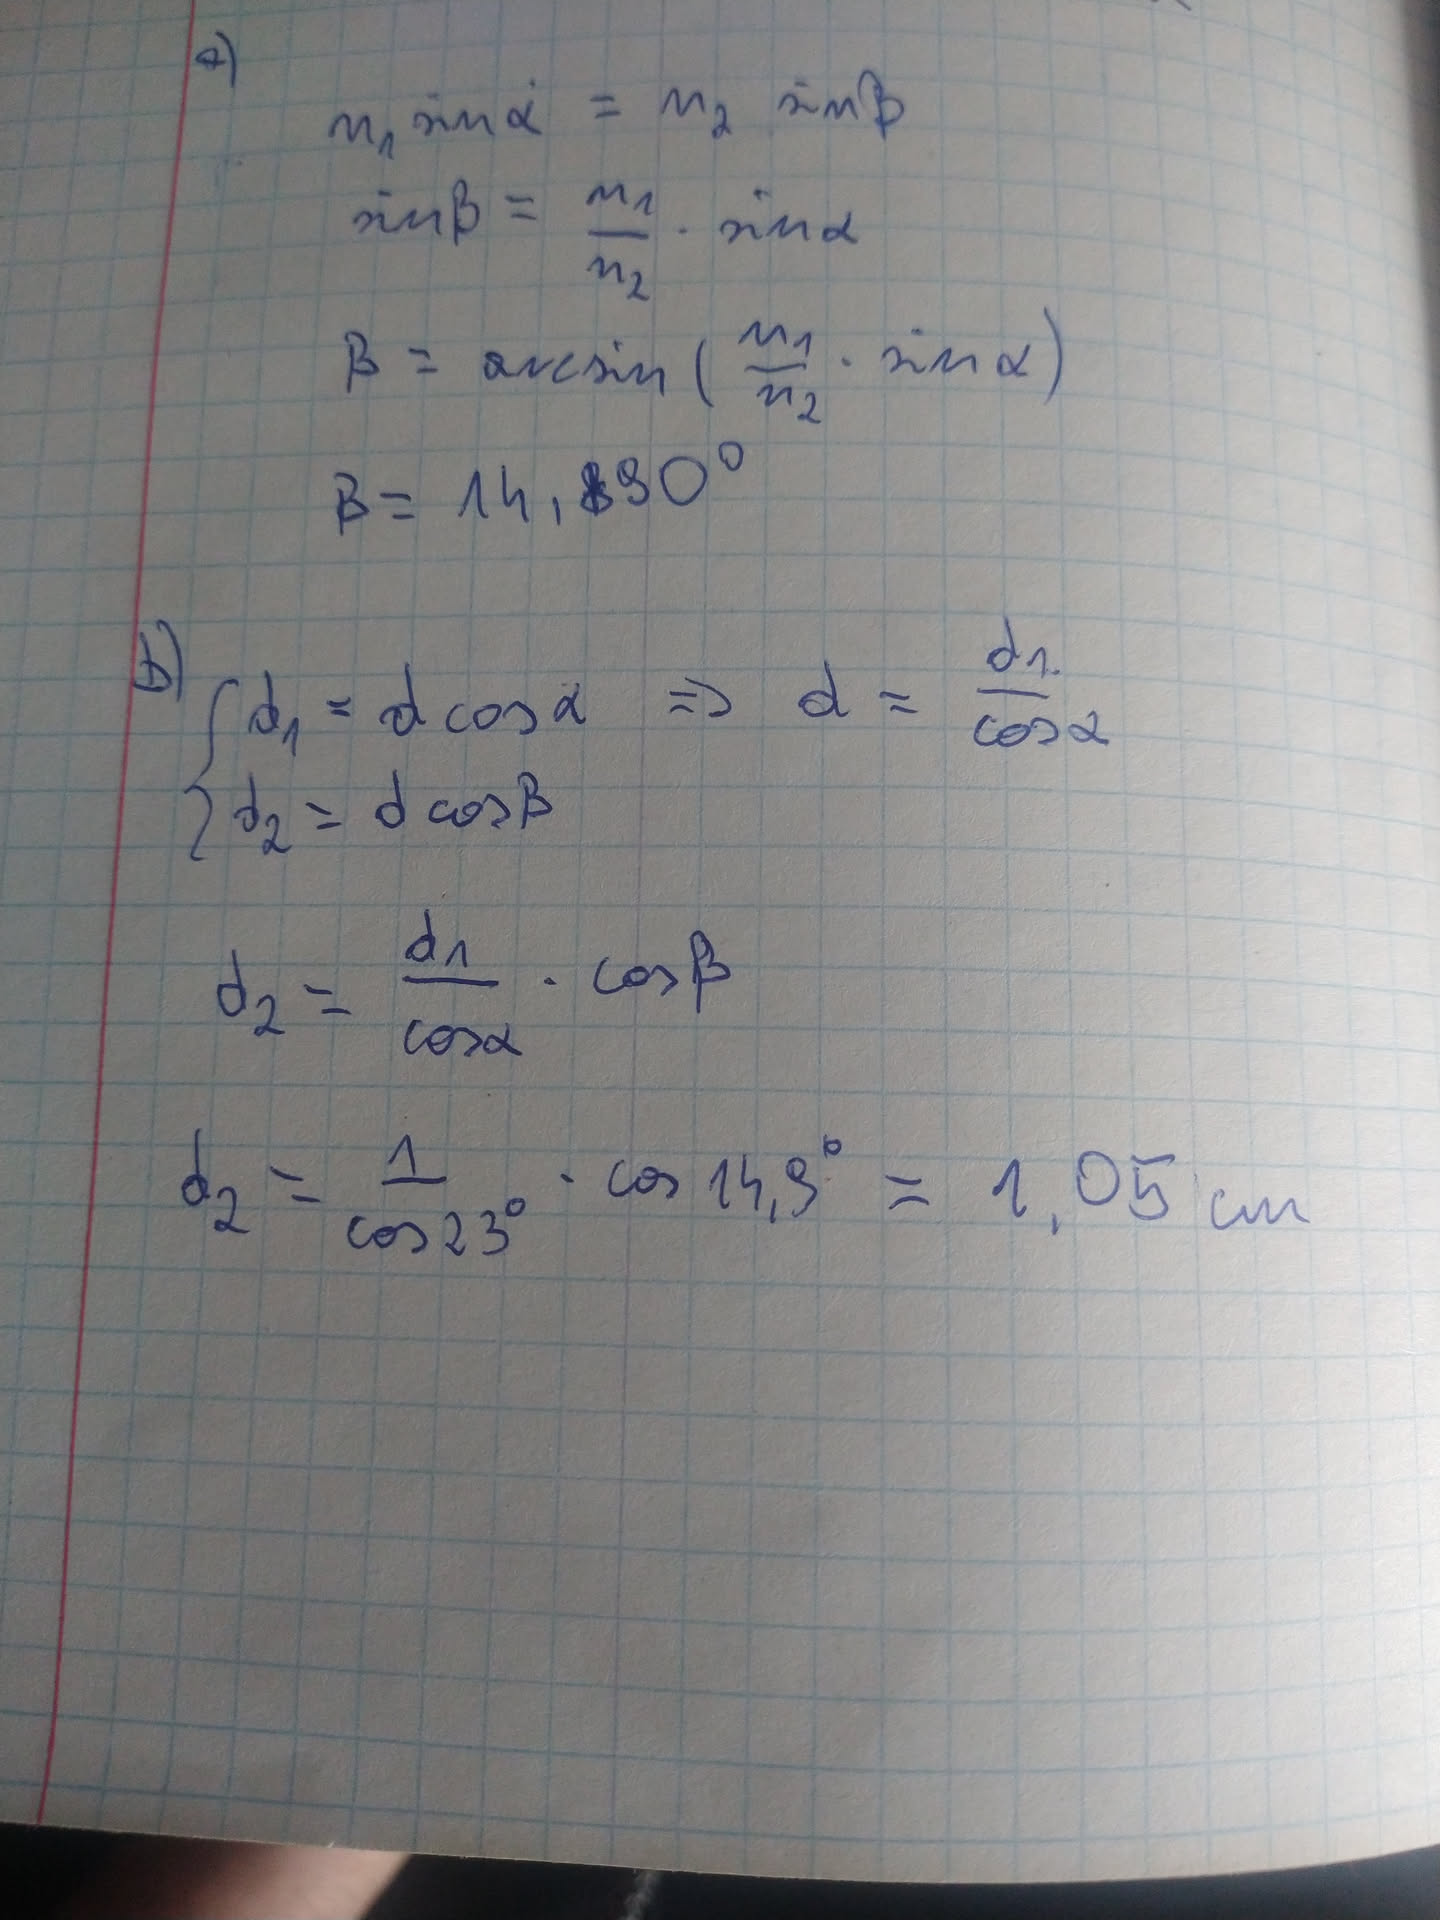 a)
n₁ sinα = n₂ sinβ
sinβ = n₁/n₂ · sinα
β = arcsin(n₁/n₂ · sinα)
β = 14,890°
b)
{ d₁ = d cosα => d = d₁/cosα
d₂ = d cosβ
d₂ = d₁/cosα · cosβ
d₂ = 1/cos23° · cos14,9° = 1,05 cm